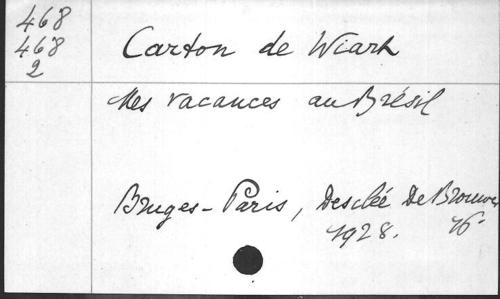 468
468
2
Carton de Wiart
Mes vacances au Brésil
Bruges-Paris, Desclée De Brouwer
1928.